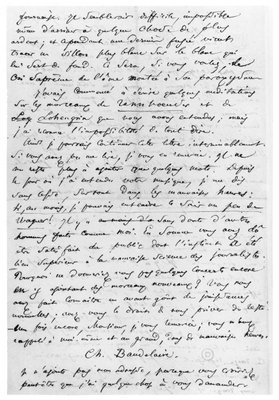 fournaise, je semblerais difficile, impossible
même d'arriver à quelque chose de plus
ardent; et cependant une dernière fusée vient
tracer un sillon plus blanc sur le blanc qui
lui sert de fond. Ce sera, si vous voulez, le
cri suprême de l'âme montée à son paroxysme.
J'avais commencé à écrire quelques méditations
sur les morceaux de Tannhäuser et de
Lohengrin que nous avons entendus; mais
j'ai reconnu l'impossibilité de tout dire.
Ainsi je pourrais continuer cette lettre interminablement.
Si vous avez pu me lire, je vous en remercie. Il ne
me reste plus à ajouter que quelques mots. Depuis
le jour où j'ai entendu votre musique, je me dis
sans cesse, surtout dans les mauvaises heures:
Si, au moins, je pouvais entendre ce soir un peu de
Wagner! Il y a sans doute d'autres
hommes faits comme moi. En somme vous avez dû
être satisfait du public dont l'instinct a été
bien supérieur à la mauvaise science des journalistes.
Pourquoi ne donneriez-vous pas quelques concerts encore
en y ajoutant des morceaux nouveaux? Vous nous
avez fait connaître un avant-goût de jouissances
nouvelles; avez-vous le droit de nous priver du reste?
Une fois encore, Monsieur, je vous remercie; vous m'avez
rappelé à moi-même et au grand, dans de mauvaises heures.
Ch. Baudelaire.
Je n'ajoute pas mon adresse, parce que vous croiriez
peut-être que j'ai quelque chose à vous demander.